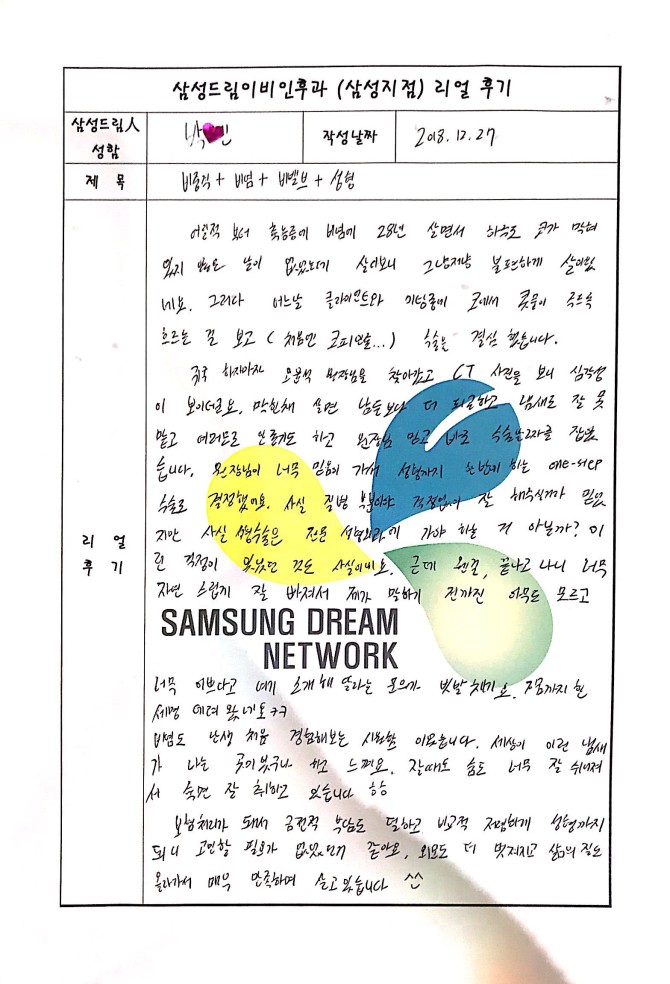 삼성드림이비인후과 (삼성지점) 리얼 후기
삼성드림人
성함
박 민
작성날짜
2018.12.27
제 목
비중격 + 비염 + 비밸브 + 성형
리 얼
후 기
어릴적 부터 축농증에 비염에 28년 살면서 하루도 코가 막혀
있지 않은 날이 없었는데 살아보니 그냥저냥 불편하게 살아있
네요. 그러다 어느날 클라이언트와 미팅중에 코에서 콧물이 주르륵
흐르는 걸 보고 ( 처음엔 코피인줄...) 수술을 결심 했습니다.
하자마자 오윤석 원장님을 찾아갔고 CT 사진을 보니 심각성
이 보이더라고요. 막힌채 살면 남들보다 더 피곤하고 냄새도 잘 못
맡고 여러모로 안좋기도 하고 원장님 믿고 바로 수술날짜를 잡았
습니다. 원장님이 너무 믿음이 가서 성형까지 한번에 하는 one-step
수술로 결정했어요. 사실 질병 부분이야 걱정없이 잘 해주실거라 믿었
지만 사실 성형수술은 전문 성형외과에 가야 하는 거 아닐까? 이
런 걱정이 있었던 것도 사실이네요. 근데 웬걸, 끝나고 나니 너무
자연 스럽게 잘 바뀌어서 제가 말하기 전까진 아무도 모르고
SAMSUNG DREAM
NETWORK
너무 이쁘다고 여기 소개해 달라는 문의가 빗발쳤어요. 지금까지 한
세명 데려 왔네요 ㅋㅋ
비염도 난생 처음 경험해보는 시원함 이었습니다. 세상이 이런 냄새
가 나는 곳이었구나 하고 느껴요. 잘때도 숨도 너무 잘 쉬어져
서 숙면 잘 취하고 있습니다 ㅎㅎ
보험처리가 돼서 금전적 부담도 덜하고 비교적 저렴하게 성형까지
되니 고민할 필요가 없었던거 같아요. 외모도 더 멋져지고 삶의 질도
올라가서 매우 만족하며 살고 있습니다 ^^